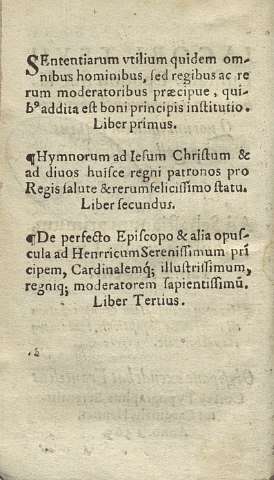 SEntentiarum vtilium quidem om-
nibus hominibus, sed regibus ac re
rum moderatoribus præcipue, qui-
b⁹ addita est boni principis institutio.
Liber primus.
¶Hymnorum ad Iesum Christum &
ad diuos huisce regni patronos pro
Regis salute & rerum felicissimo statu.
Liber secundus.
¶De perfecto Episcopo & alia opus-
cula ad Henrricum Serenissimum prī
cipem, Cardinalemq; illustrissimum,
regniq; moderatorem sapientissimū.
Liber Tertius.